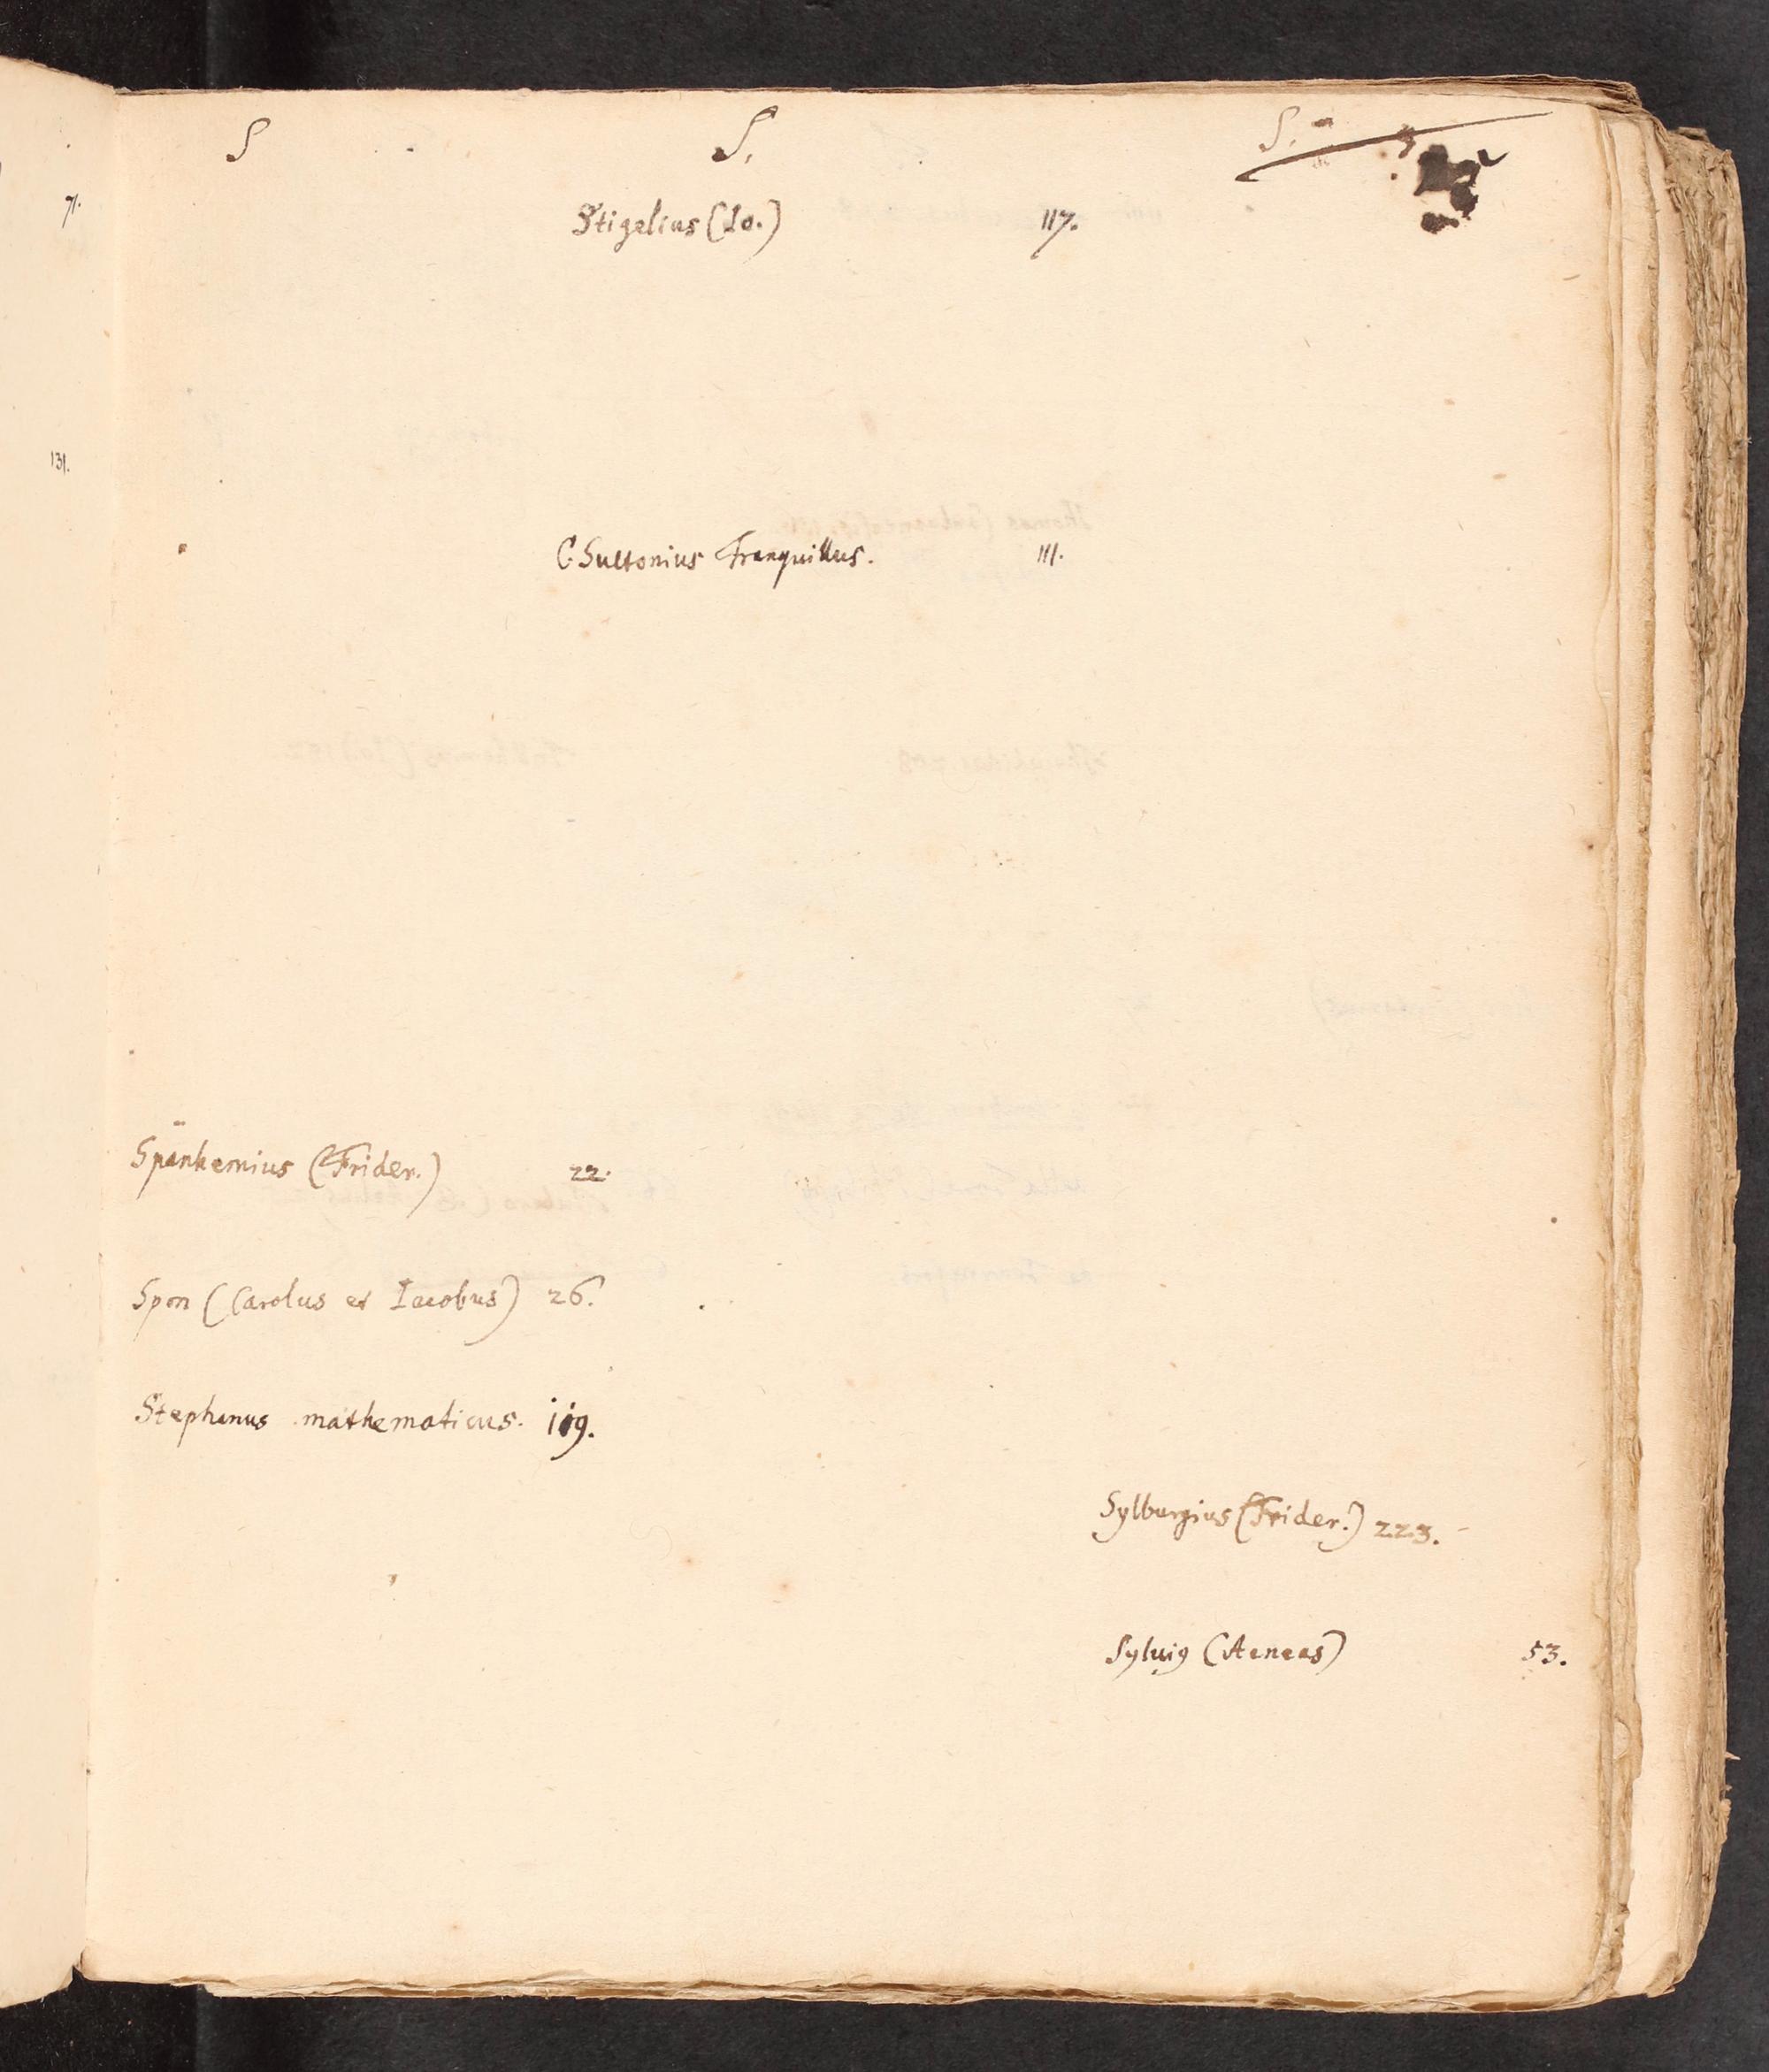 S
S.
S.
71.
Stigelius (Io.) 117.
131.
C. Suetonius Tranquillus. 111.
Spanhemius (Frider.) 22.
Spon (Carolus et Iacobus) 26.
Stephanus mathematicus. 119.
Sylburgius (Frider.) 223.
Sylvig (Aeneas) 53.